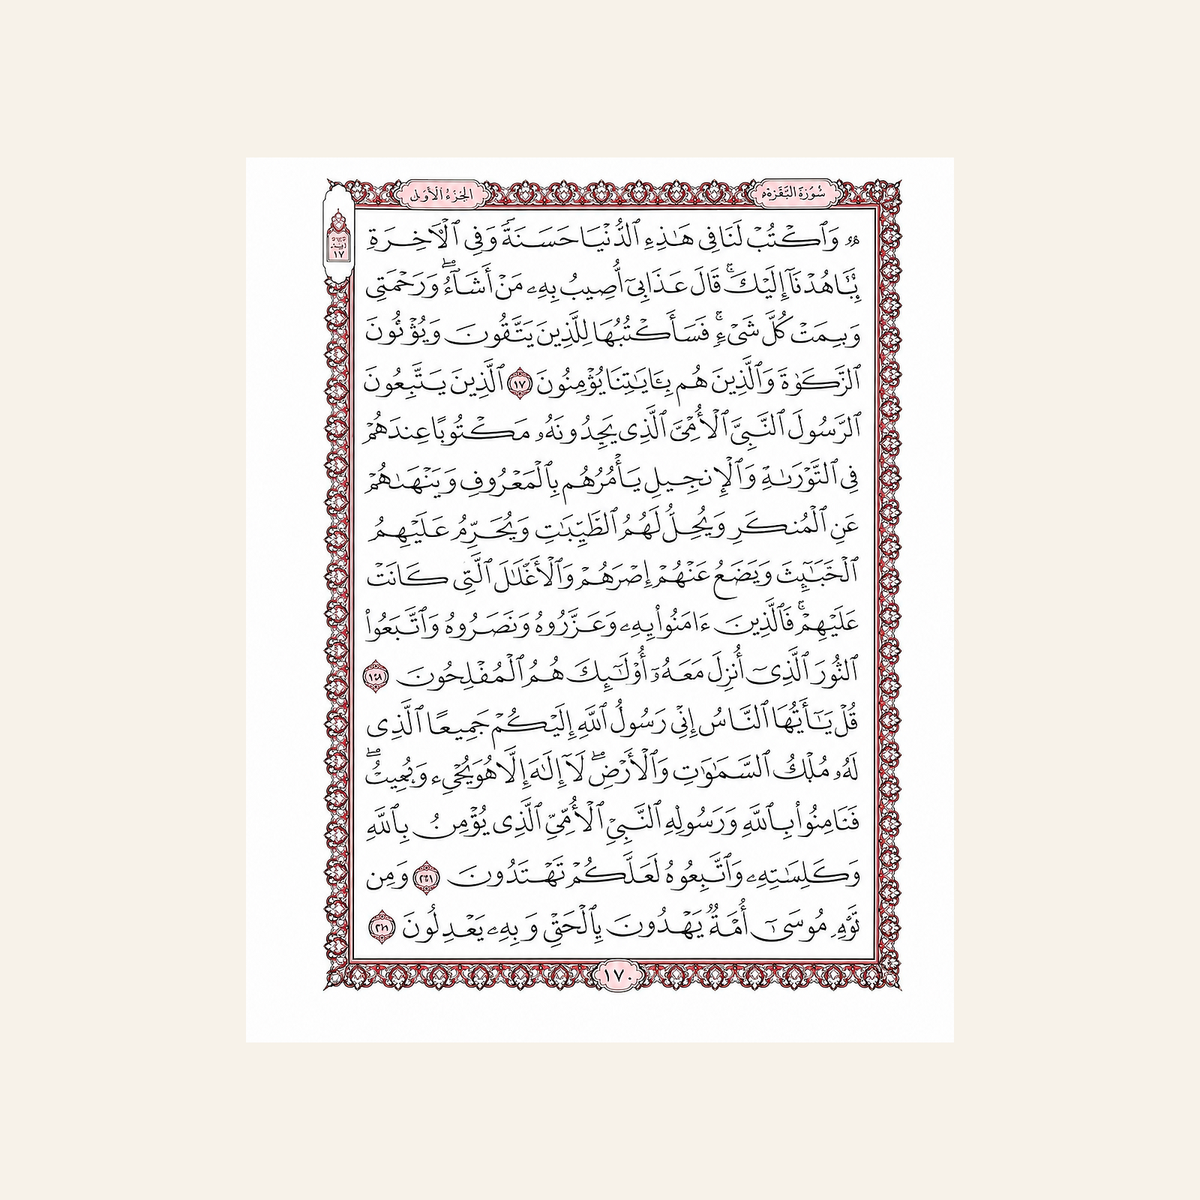 سُورَةُ البَقَرَةِ
الجُزْءُ الأَوَّل
١٧
وَٱكْتُبْ لَنَا فِى هَـٰذِهِ ٱلدُّنْيَا حَسَنَةً وَفِى ٱلْآخِرَةِ
هُدْنَآ إِلَيْكَ ۚ قَالَ عَذَابِىٓ أُصِيبُ بِهِۦ مَنْ أَشَآءُ ۖ وَرَحْمَتِى
كُلَّ شَىْءٍ ۚ فَسَأَكْتُبُهَا لِلَّذِينَ يَتَّقُونَ
ٱلزَّكَوٰةَ وَٱلَّذِينَ هُم بِـَٔايَـٰتِنَا يُؤْمِنُونَ ١٧ ٱلَّذِينَ يَتَّبِعُونَ
ٱلرَّسُولَ ٱلنَّبِىَّ ٱلْأُمِّىَّ ٱلَّذِى يَجِدُونَهُۥ مَكْتُوبًا عِندَهُمْ
فِى ٱلتَّوْرَىٰةِ وَٱلْإِنجِيلِ يَأْمُرُهُم بِٱلْمَعْرُوفِ وَيَنْهَىٰهُمْ
عَنِ ٱلْمُنكَرِ وَيُحِلُّ لَهُمُ ٱلطَّيِّبَـٰتِ وَيُحَرِّمُ عَلَيْهِمُ
ٱلْخَبَـٰٓئِثَ وَيَضَعُ عَنْهُمْ إِصْرَهُمْ وَٱلْأَغْلَـٰلَ ٱلَّتِى كَانَتْ
عَلَيْهِمْ ۚ فَٱلَّذِينَ ءَامَنُوا۟ بِهِۦ وَعَزَّرُوهُ وَنَصَرُوهُ وَٱتَّبَعُوا۟
ٱلنُّورَ ٱلَّذِىٓ أُنزِلَ مَعَهُۥٓ أُو۟لَـٰٓئِكَ هُمُ ٱلْمُفْلِحُونَ
قُلْ يَـٰٓأَيُّهَا ٱلنَّاسُ إِنِّى رَسُولُ ٱللَّهِ إِلَيْكُمْ جَمِيعًا ٱلَّذِى
لَهُۥ مُلْكُ ٱلسَّمَـٰوَٰتِ وَٱلْأَرْضِ ۖ لَآ إِلَـٰهَ إِلَّا هُوَ يُحْىِۦ وَيُمِيتُ ۖ
فَـَٔامِنُوا۟ بِٱللَّهِ وَرَسُولِهِ ٱلنَّبِىِّ ٱلْأُمِّىِّ ٱلَّذِى يُؤْمِنُ بِٱللَّهِ
وَٱتَّبِعُوهُ لَعَلَّكُمْ تَهْتَدُونَ وَمِن
مُوسَىٰٓ أُمَّةٌ يَهْدُونَ بِٱلْحَقِّ وَبِهِۦ يَعْدِلُونَ
١٧٠